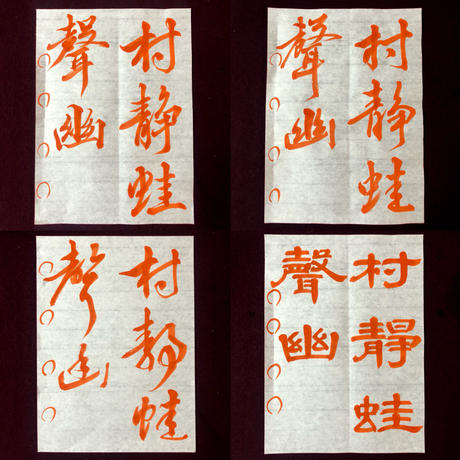 村静蛙
聲幽
村静蛙
聲幽
村静蛙
聲幽
村靜蛙
聲幽